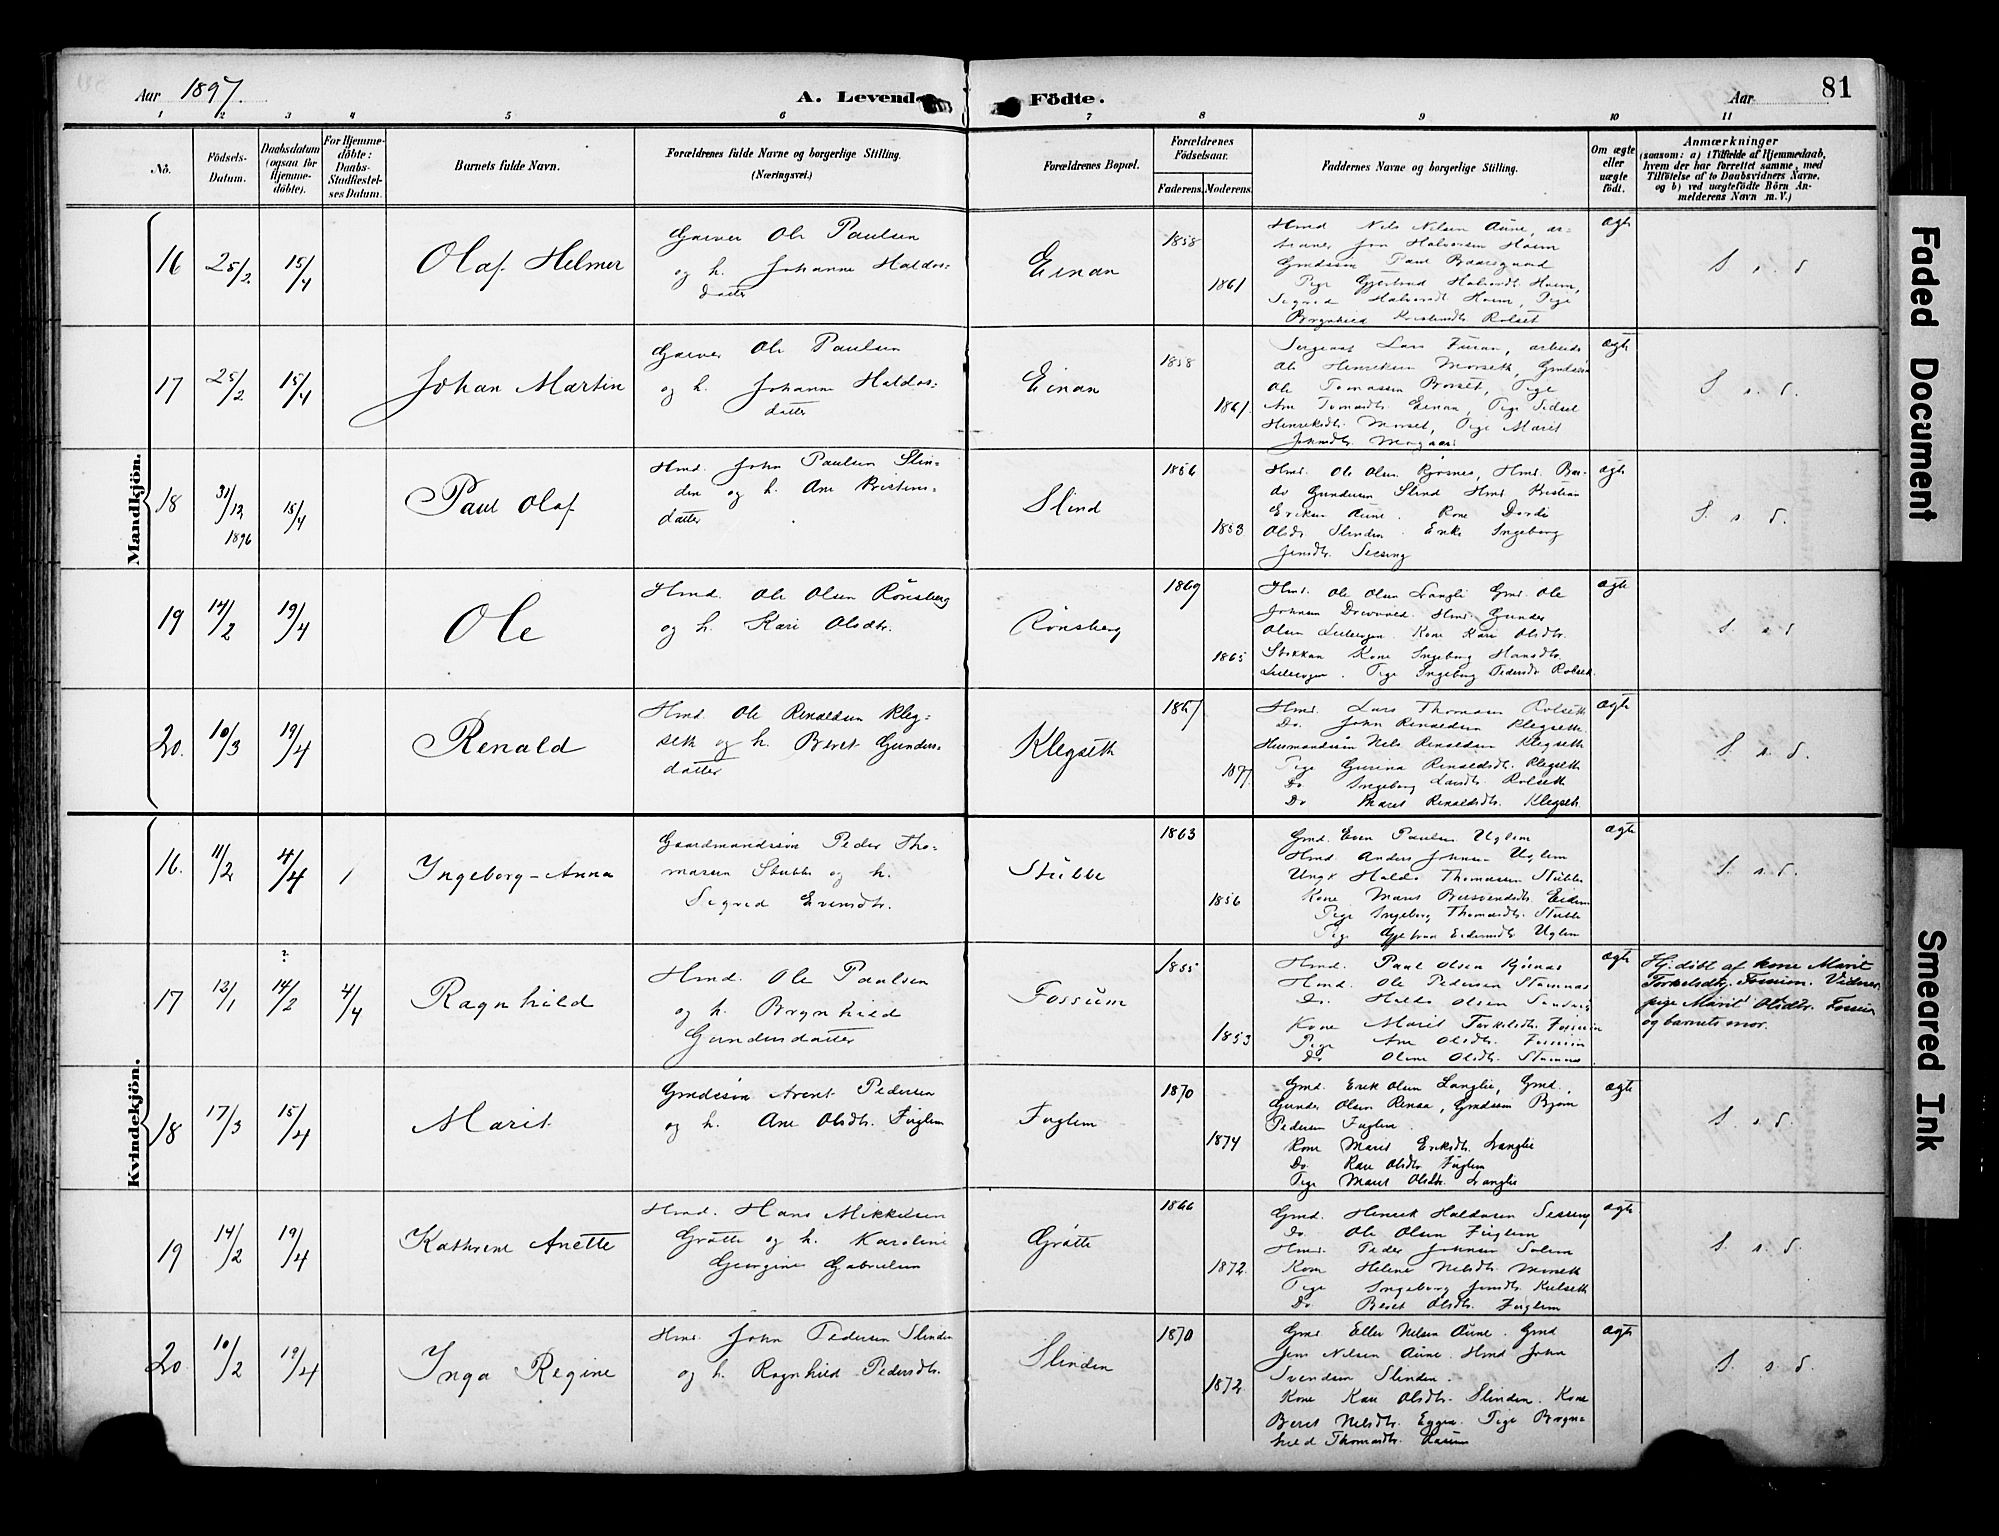 Aar 1897.
A. Levende Födte.
Aar
81
1 2 3 4 5 6 7 8 9 10 11
No.
Födsels-
Datum.
Daabsdatum
(ogsaa for
Hjemme-
döbte).
For Hjemme-
döbte:
Daabs-
Stadfæstel-
ses Datum.
Barnets fulde Navn.
Forældrenes fulde Navne og borgerlige Stilling.
(Næringsvei.)
Forældrenes Bopæl.
Forældrenes
Födselsaar.
Faderens. Moderens.
Faddernes Navne og borgerlige Stilling.
Om ægte
eller
uægte
födt.
Anmærkninger
(saasom: a) i Tilfælde af Hjemmedaab,
hvem der har forrettet samme, med
Tilföielse af to Daabsvidners Navne,
og b) ved uægtefödte Börn An-
melderens Navn m. V.)
Mandkjön.
16 25/2 15/4 Olaf Helmer
Garver Ole Paulsen
og h. Johanne Haldos-
datter
Einan 1858 1861
Hmd Nils Nilsen Aune, ar-
Jon Halvorsen Hoem
Gmdssøn Paul Baarsgaard
Pige Gjertrud Halvordt. Hoem,
Sigrid Halvordt Hoem, Pige
Brynhild Rolset
ægte
S. s. d.
17 25/2 15/4 Johan Martin
Garver Ole Paulsen
og h. Johanne Haldos-
datter
Einan 1858 1861.
Sergeant Lars Furan, arbeider
Ole Henriksen Morseth, Gmdssøn
Ole Tomassen Borset, Pige
Ane Tomasdtr. Einan, Pige Sidsel
Henriksdtr. Morset, Pige Marit
ægte
S. s. d.
18 31/12 1896 15/4 Paul Olaf
Hmd. John Paulsen Slin-
den og h. Ane Kristens-
datter
Slind 1856 1853
Hmd. Ole Olsen Kjøsnes, Hmd. Bar-
do Gundersen Slind Hmd Kristian
Eriksen Aune. Kone Dordi
Olsdt. Slinden. Enke Ingeborg
Jensdtr. Sesseng
ægte
S. s. d.
19 14/2 19/4 Ole
Hmd. Ole Olsen Rönsberg
og h. Kari Olsdtr.
Rönsberg 1869 1865
Hmd. Ole Olsen Langli Gmd. Ole
Johnsen Hmd. Gunder
Olsen Kone Kari Olsdtr.
Stokkan Kone Ingeborg Hansdtr.
Pige Ingeborg Pedersdtr Rolseth.
ægte
S. s. d
20. 10/3 19/4 Renald
Hmd. Ole Renaldsen Kleg-
seth og h. Beret Gunders-
datter
Klegseth 1877.
Hmd. Lars Thomasen Rolseth
Do. John Renaldsen Klegseth.
Husmandssön Nils Renaldsen Klegseth
Pige Gurina Renaldsdtr. Klegseth
Do Ingeborg Larsdtr. Rolseth
Do Marit Renaldsdtr. Klegset.
ægte
S. s. d.
Kvindekjön.
16. 11/2 4/4 / Ingeborg-Anna
Gaardmandssön Peder Tho-
masen Stubbe og h.
Sigrid Evensdtr.
Stubbe 1863 1856
Gmd. Even Paulsen Uglem
Hmd. Anders Johnsen Uglem
Ungk Haldo Thomassen Stubbe
Kone Marit Bersvendsdtr.
Pige Ingeborg Thomasdtr. Stubbe
Pige Uglem
ægte
S. s. d.
17 12/1 ? 14/2 4/4 Ragnhild
Hmd. Ole Paulsen
og h. Brynhild
Gundersdatter
Fossum 1855 1853
Hmd. Paul Olsen Kjösnes
Hmd. Ole Pedersen Stamnes
Do. Haldo Olsen
Kone Marit Torkelsdtr. Fossum
Pige Ane Olsdtr. Fossum
Do. Oline Olsdtr. Stamnes.
ægte
Hj. döbt af kone Marit
Torkelsdtr. Fossum. Vidner
pige Marit Olsdtr. Fossum
og barnets mor.
18 17/3 15/4 Marit
Gmdssön Arent Pedersen
og h. Ane Olsdtr. Fuglem
Fuglem 1870 1874
Gmd. Erik Olsen Langlie, Gmd.
Gunder Olsen Renaa, Gmdssøn Björn
Pedersen Fuglem.
Kone Marit Eriksdtr. Langlie
Do. Kari Olsdtr Fuglem
Pige Marit Olsdtr. Langlie
ægte
S. s. d.
19 14/2 19/4 Kathrine Anette
Hmd. Hans Mikkelsen
Gråtte og h. Karoline
Georgine Gabrielsen
Gråtte 1866 1872.
Gmd. Henrik Haldosen Sesseng
Do. Ole Olsen Fuglem
Hmd. Peder Johnsen Solem
Kone Helene Nilsdtr. Morseth
Pige Ingeborg Jonsdtr. Kulseth
Do. Beret Olsdtr. Fuglem
ægte
S. s. d.
20 10/2 19/4 Inga Regine
Hmd. John Pedersen Slinden
og h. Ragnhild Pedersdtr.
Slinden 1870 1872.
Gmd. Eller Nilsen Aune. Gmd
Jens Nilsen Aune. Hmd John
Svendsen Slinden.
Kone Kari Olsdtr. Slinden. Kone
Beret Nilsdtr. Eggen. Pige Bryn-
hild Thomasdtr.
ægte
S. s. d.
Faded Document
Smeared Ink